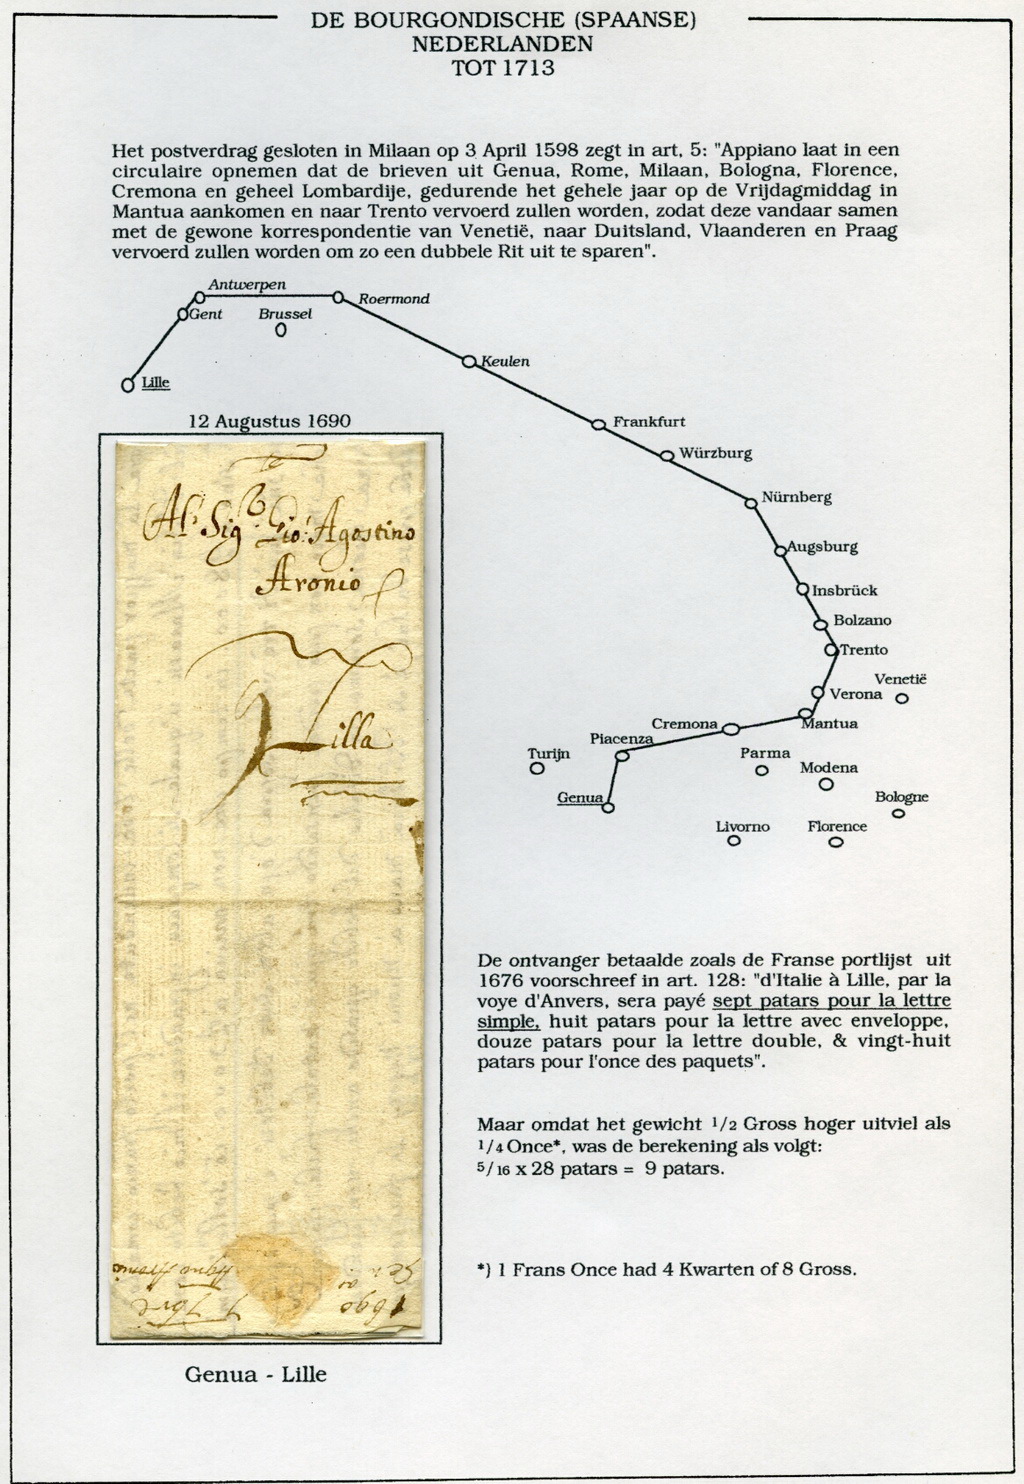 DE BOURGONDISCHE (SPAANSE)
NEDERLANDEN
TOT 1713
Het postverdrag gesloten in Milaan op 3 April 1598 zegt in art, 5: "Appiano laat in een
circulaire opnemen dat de brieven uit Genua, Rome, Milaan, Bologna, Florence,
Cremona en geheel Lombardije, gedurende het gehele jaar op de Vrijdagmiddag in
Mantua aankomen en naar Trento vervoerd zullen worden, zodat deze vandaar samen
met de gewone korrespondentie van Venetië, naar Duitsland, Vlaanderen en Praag
vervoerd zullen worden om zo een dubbele Rit uit te sparen".
Antwerpen
Roermond
Gent
Brussel
Keulen
Lille
Frankfurt
Würzburg
Nürnberg
Augsburg
Insbrück
Bolzano
Trento
Venetië
Verona
Mantua
Cremona
Piacenza
Turijn
Parma
Modena
Genua
Bologne
Livorno
Florence
12 Augustus 1690
Al Sig Gio: Agostino
Aronio
Lilla
1690
Genua - Lille
De ontvanger betaalde zoals de Franse portlijst uit
1676 voorschreef in art. 128: "d'Italie à Lille, par la
voye d'Anvers, sera payé sept patars pour la lettre
simple, huit patars pour la lettre avec enveloppe,
douze patars pour la lettre double, & vingt-huit
patars pour l'once des paquets".
Maar omdat het gewicht 1/2 Gross hoger uitviel als
1/4 Once*, was de berekening als volgt:
5/16 x 28 patars = 9 patars.
*) 1 Frans Once had 4 Kwarten of 8 Gross.